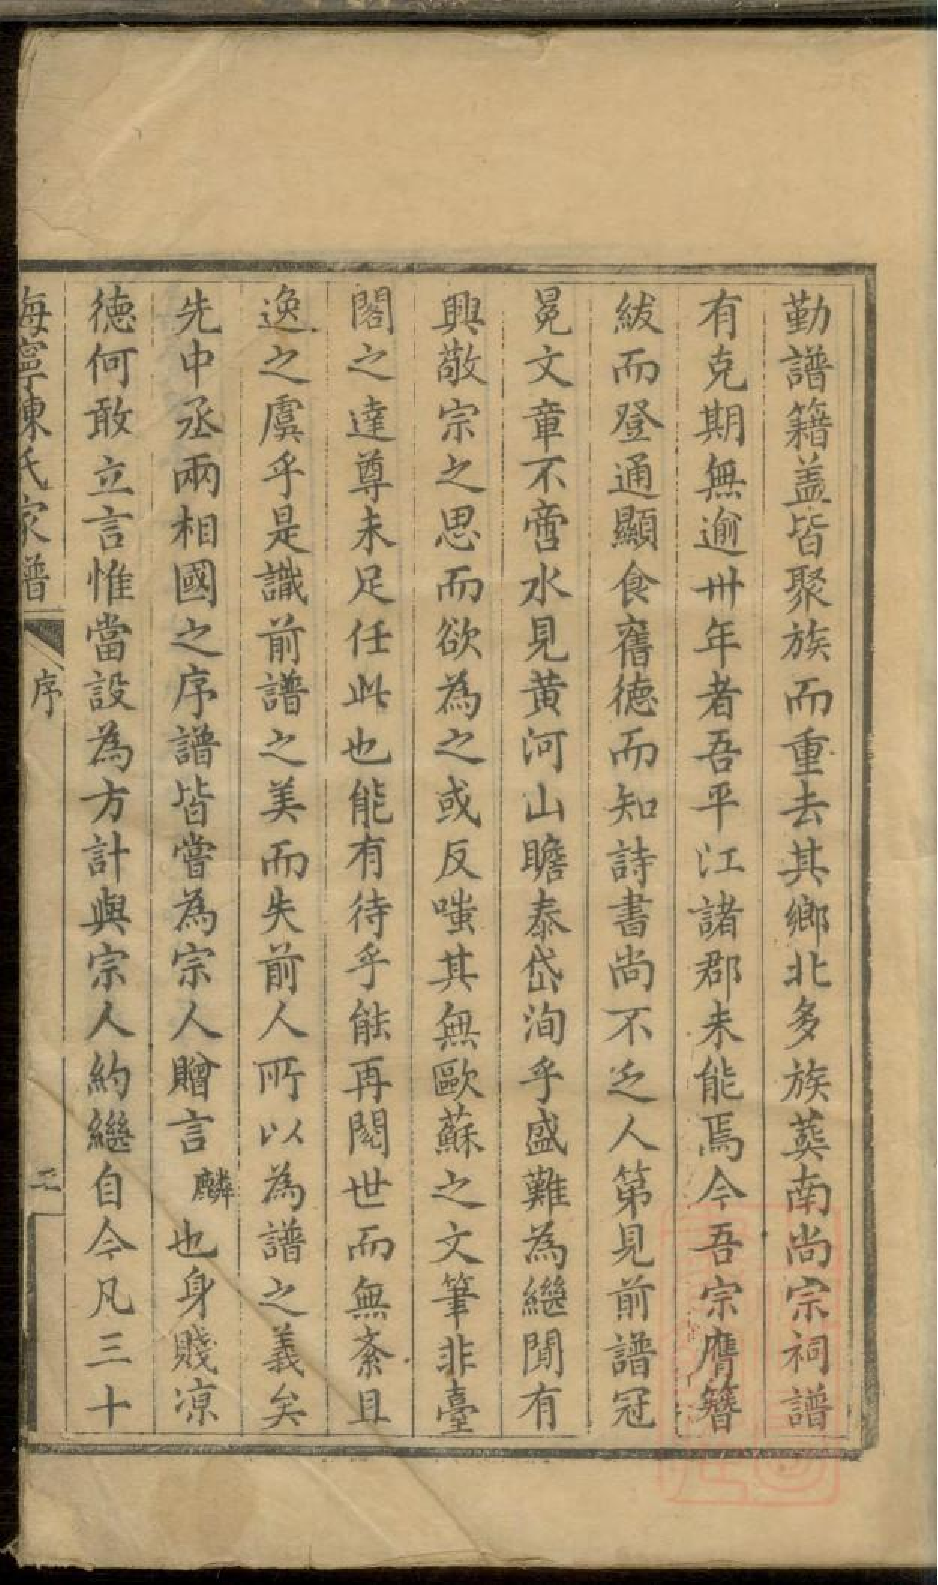 勤譜籍盖皆聚族而重去其鄉北多族葬南尚宗祠譜
有克期無逾卅年者吾平江諸郡未能焉今吾宗膺簪
紱而登通顯食舊德而知詩書尚不乏人第見前譜冠
冕文章不啻水見黄河山瞻泰岱洵乎盛難為繼間有
興敬宗之思而欲為之或反嗤其無歐蘇之文筆非臺
閣之達尊未足任此也能有待乎能再閱世而無紊且
逸之虞乎是識前譜之美而失前人所以為譜之義矣
先中丞兩相國之序譜皆嘗為宗人贈言麟也身賤凉
徳何敢立言惟當設為方計與宗人約繼自今凡三十
海寧陳氏家譜 序